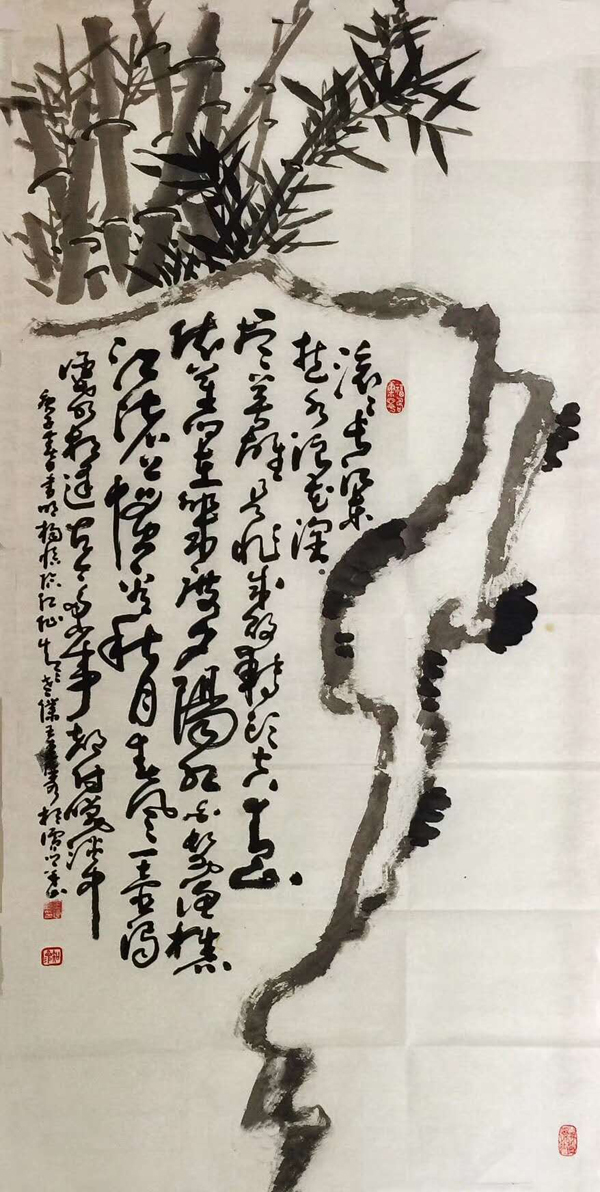 滚滚长江东
逝水浪花淘
尽英雄是非成败转头空青山
依舊在几度夕陽红白发渔樵
江渚上惯看秋月春风一壶浊
酒喜相逢古今多少事都付笑谈中
庚子書明楊慎临江仙